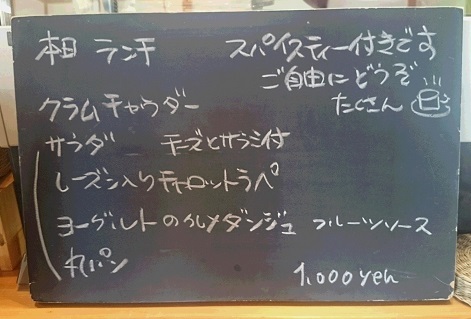 本日 ランチ
スパイスティー付きです
ご自由にどうぞ
たくさん
クラムチャウダー
サラダ チーズとサラミ付
レーズン入りキャロットラペ
ヨーグルトのクレメダンジュ フルーツソース
丸パン
1,000yen